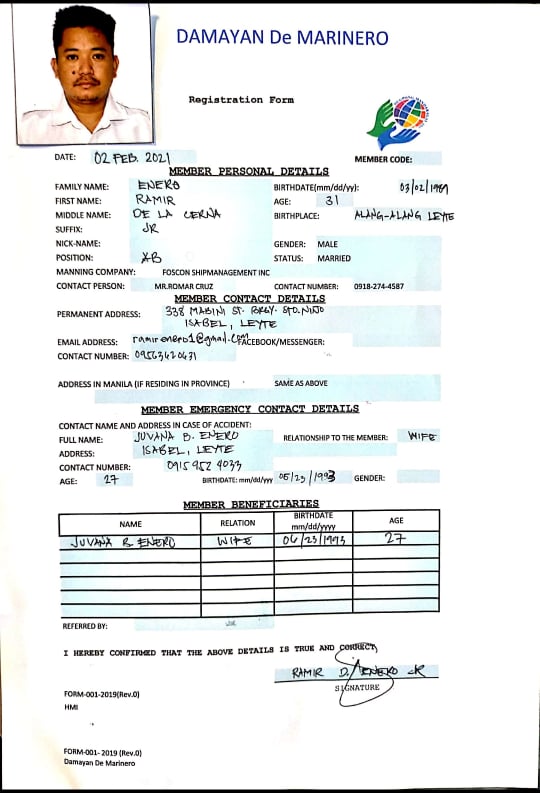 DAMAYAN De MARINERO
Registration Form
DATE: 02 FEB. 2021 MEMBER CODE:
MEMBER PERSONAL DETAILS
FAMILY NAME: ENERO BIRTHDATE(mm/dd/yy): 03/02/1989
FIRST NAME: RAMIR AGE: 31
MIDDLE NAME: DE LA CERNA BIRTHPLACE: ALANG-ALANG LEYTE
SUFFIX: JR
NICK-NAME: GENDER: MALE
POSITION: AB STATUS: MARRIED
MANNING COMPANY: FOSCON SHIPMANAGEMENT INC
CONTACT PERSON: MR.ROMAR CRUZ CONTACT NUMBER: 0918-274-4587
MEMBER CONTACT DETAILS
PERMANENT ADDRESS: 338 MABINI ST. BRGY. STO.NIÑO
ISABEL, LEYTE
EMAIL ADDRESS: ramirenero1@gmail.com FACEBOOK/MESSENGER:
CONTACT NUMBER: 09563420431
ADDRESS IN MANILA (IF RESIDING IN PROVINCE) SAME AS ABOVE
MEMBER EMERGENCY CONTACT DETAILS
CONTACT NAME AND ADDRESS IN CASE OF ACCIDENT:
FULL NAME: JUVANA B. ENERO RELATIONSHIP TO THE MEMBER: WIFE
ADDRESS: ISABEL, LEYTE
CONTACT NUMBER: 0915 952 4033
AGE: 27 BIRTHDATE: mm/dd/yyy 05/23/1993 GENDER:
MEMBER BENEFICIARIES
NAME RELATION BIRTHDATE mm/dd/yyyy AGE
JUVANA B. ENERO WIFE 06/23/1993 27
REFERRED BY:
I HEREBY CONFIRMED THAT THE ABOVE DETAILS IS TRUE AND CORRECT,
RAMIR D. ENERO JR
SIGNATURE
FORM-001-2019(Rev.0)
HMI
FORM-001- 2019 (Rev.0)
Damayan De Marinero